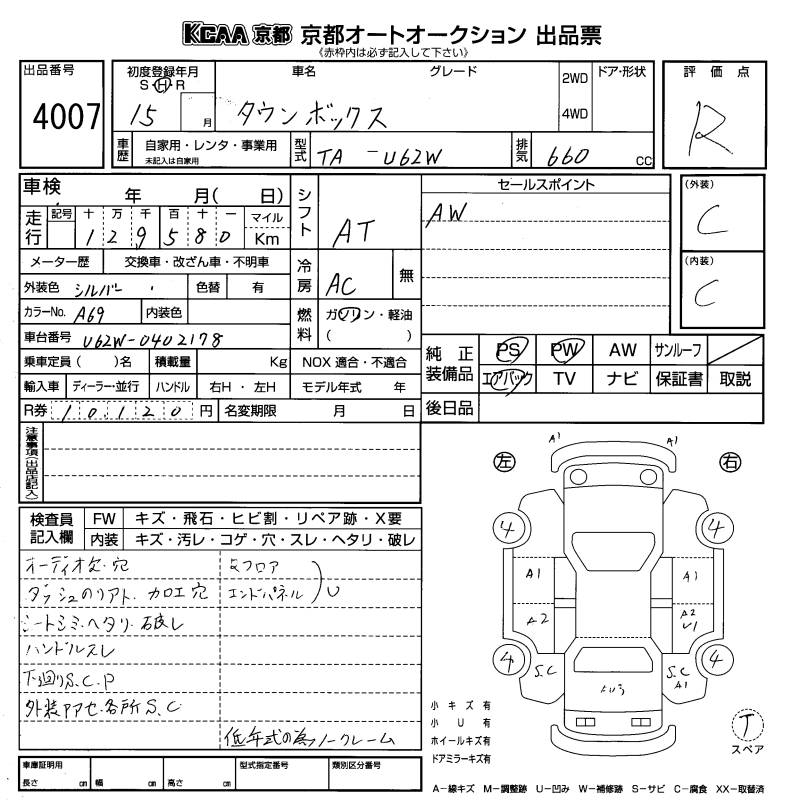 KCAA 京都 京都オートオークション 出品票
《赤枠内は必ず記入して下さい》
出品番号
4007
初度登録年月
S・H・R
15
月
車名
グレード
タウンボックス
2WD
4WD
ドア・形状
車歴
自家用・レンタ・事業用
未記入は自家用
型式
TA-U62W
排気
660
cc
評価点
R
車検
年 月( 日)
走行
記号 十 万 千 百 十 一
1 2 9 5 8 0
マイル
Km
メーター歴
交換車・改ざん車・不明車
外装色
シルバー
色替
有
カラーNo.
A69
内装色
車台番号
U62W-0402178
乗車定員 ( )名
積載量
Kg
NOX 適合・不適合
輸入車
ディーラー・並行
ハンドル
右H・左H
モデル年式 年
R券
10,120 円
名変期限
月 日
シフト
AT
冷房
AC
無
燃料
ガソリン・軽油
( )
セールスポイント
AW
(外装)
C
(内装)
C
純正装備品
PS
PW
AW
サンルーフ
エアバック
TV
ナビ
保証書
取説
後日品
注意事項(出品店記入)
検査員記入欄
FW
キズ・飛石・ヒビ割・リペア跡・X要
内装
キズ・汚レ・コゲ・穴・スレ・ヘタリ・破レ
オーディオ欠.穴
ダッシュのリアト.カロエ穴
シートシミ.ヘタリ.破レ
ハンドルスレ
下廻りS.C.P
外装アアセ.各所S.C
Rフロア
エンドパネル
U
低年式の為ノークレーム
左
右
A1
A1
4
4
A1
A1
A2
A2
U1
4
4
S.C
S.C
A1
AU3
小キズ有
小U有
ホイールキズ有
ドアミラーキズ有
T
スペア
車庫証明用
長さ cm
幅 cm
高さ cm
型式指定番号
類別区分番号
A-線キズ M-調整跡 U-凹み W-補修跡 S-サビ C-腐食 XX-取替済